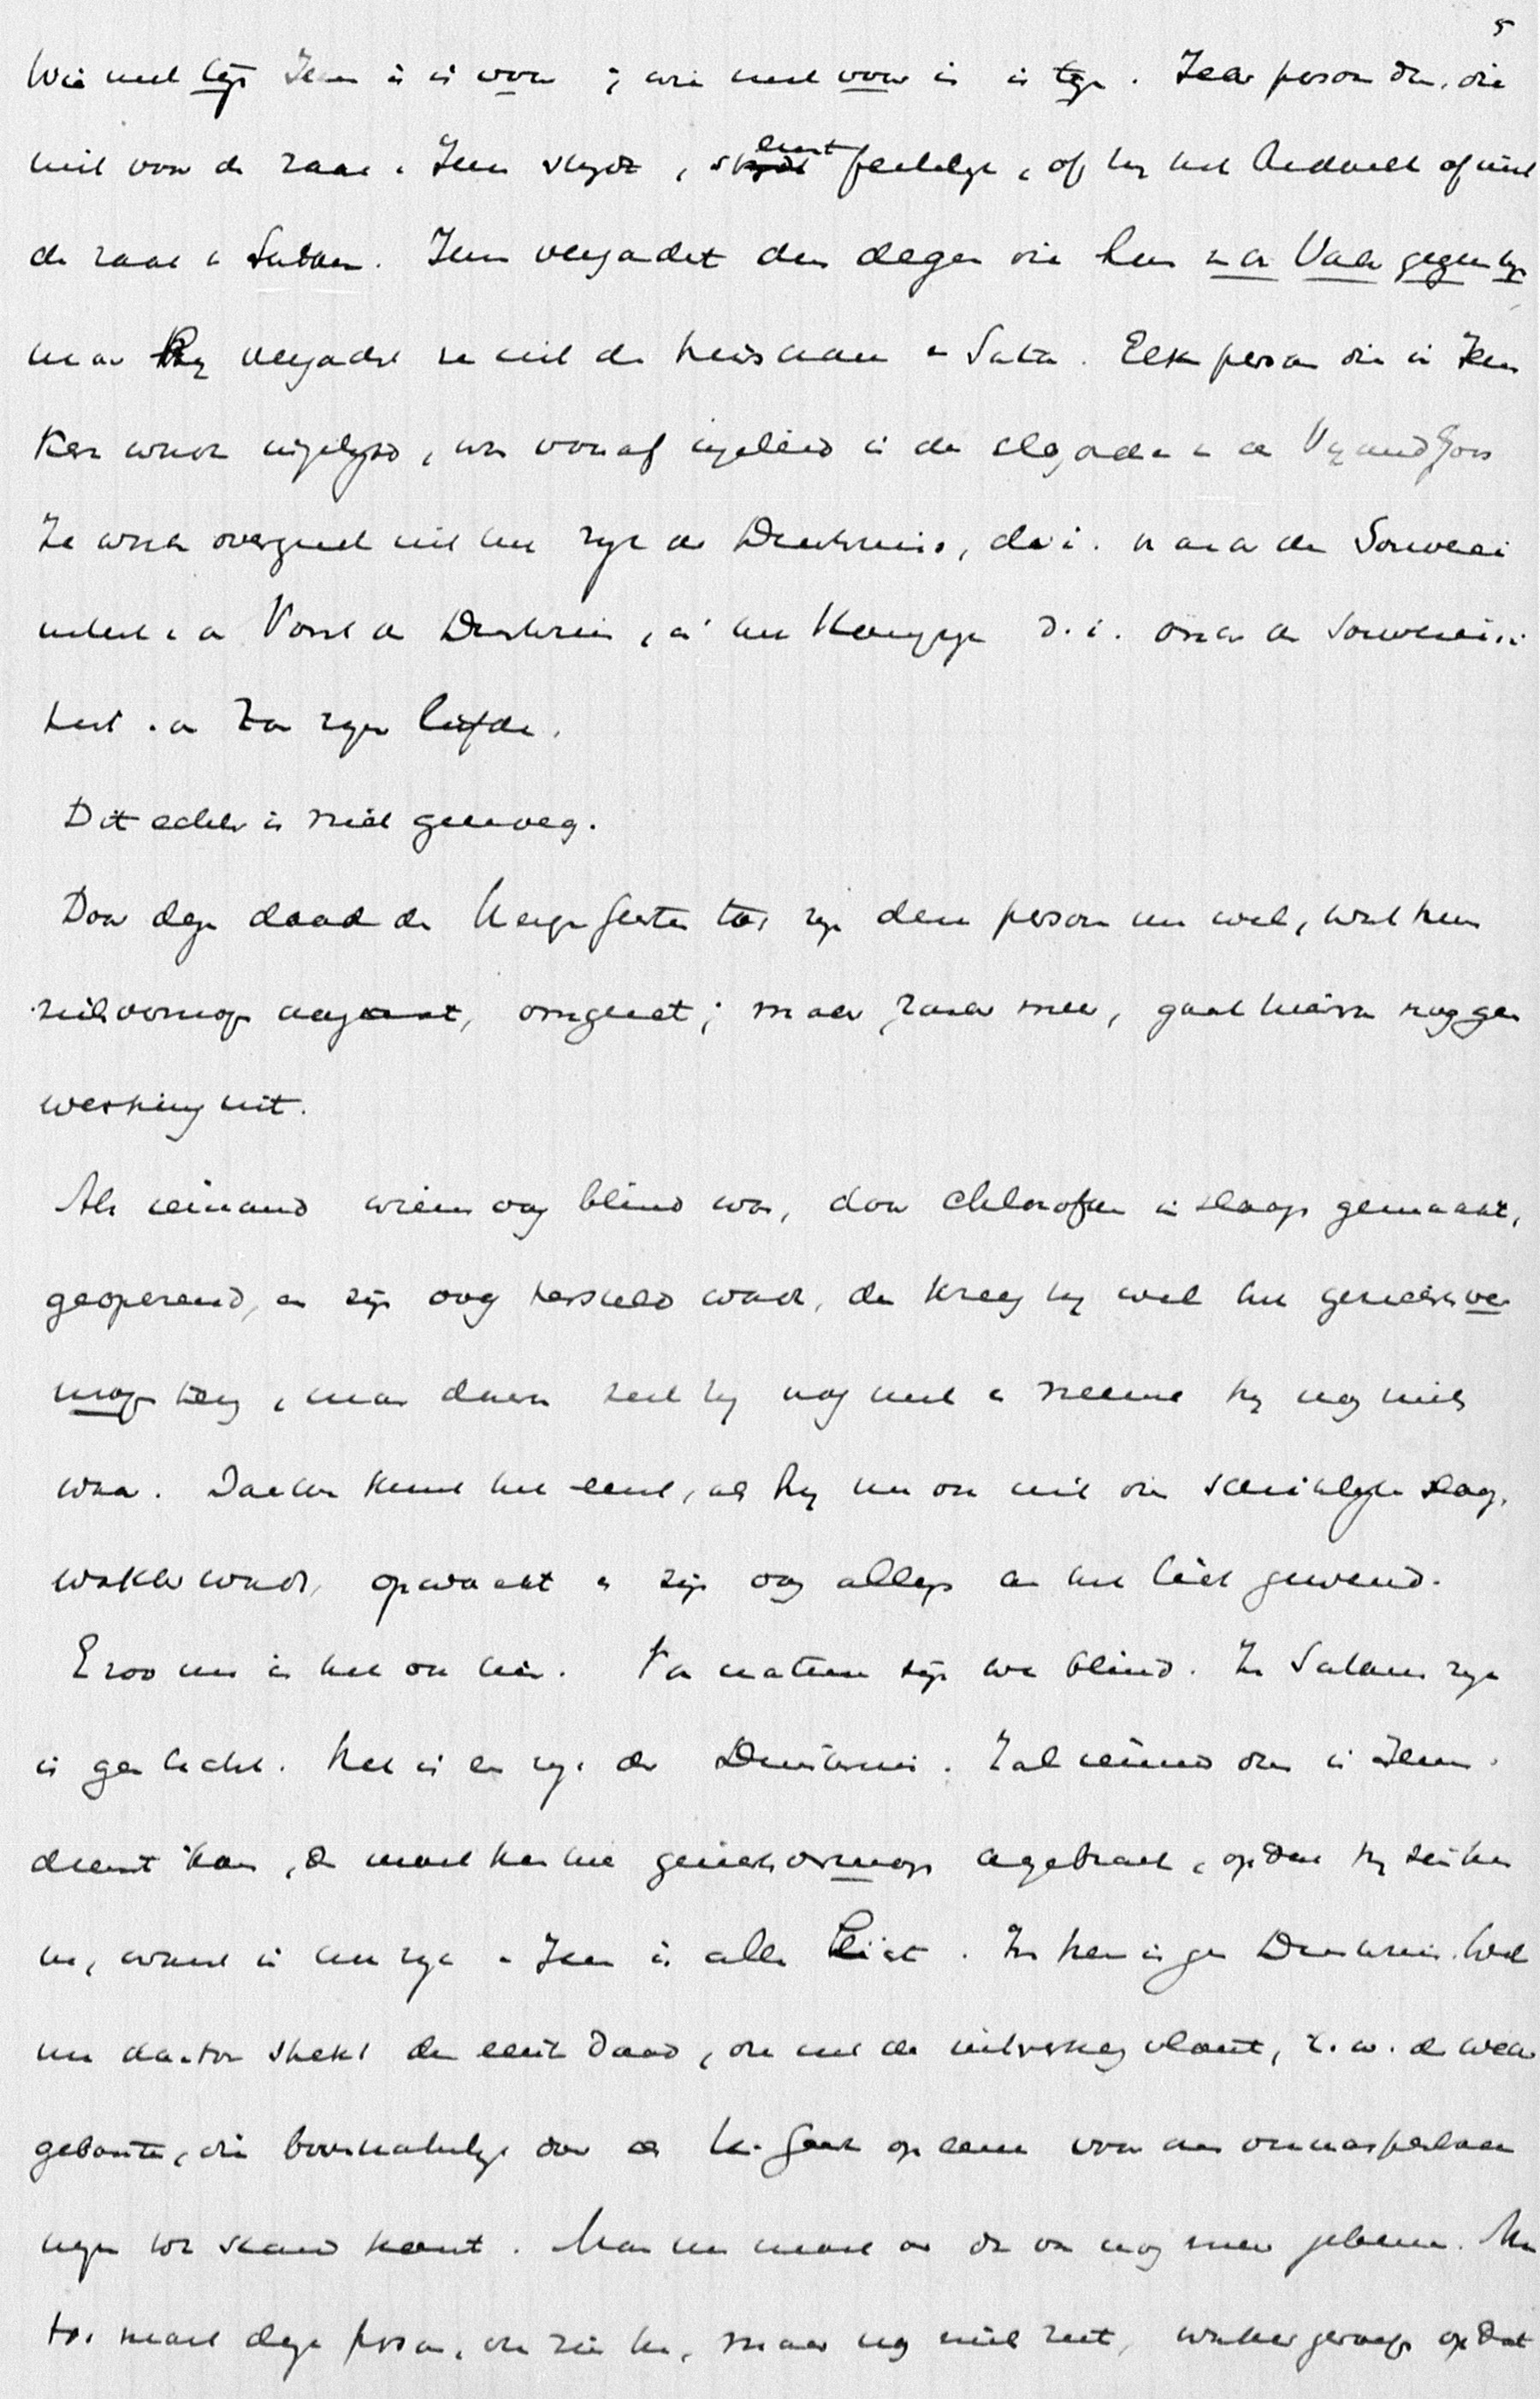 5
Wie niet tegen Jezus is is voor ; wie niet voor is is tegen . Ieder persoon dus, die
niet voor de zaak v. Jezus strijdt , feitelijk , of hij het bedoelt of niet
de zaak v Satan . Jezus vergadert dus degenen die hem v. d. Vader gegeven zijn
maar Hij vergadert ze uit de huismacht v Satan . Elk persoon die in Jezus
Kerk wordt ingelijfd , was vooraf ingelijfd in de slagorde v. d. Vijand Gods
Ze worden overgezet uit het rijk der Duisternis , d. i. van onder de Souverei
niteit v. d. Vorst der Duisternis , in het Koninkrijk d. i. onder de souvereini
teit v. d. Zoon zijner liefde .
Dit echter is niet genoeg .
Door deze daad des Heiligen Geestes is deze persoon nu wel , wat zijn
zielsvermogen aangaat , omgezet ; maar , zonder meer , gaat hiervan nog geen
werking uit .
Als iemand wiens oog blind was , door chloroform in slaap gemaakt ,
geopereerd , en zijn oog hersteld wordt , dan kreeg hij wel het gezichtsver
mogen terug , maar daarom ziet hij nog niet en neemt hij nog niets
waar . Daartoe komt het eerst , als hij nu ook uit die schijnbare slaap ,
wakker wordt , opwaakt en zijn oog allengs aan het licht gewend .
Evzoo nu is het ook hier . Van nature zijn we blind . In Satans rijk
is geen licht . Het is een rijk der Duisternis . Zal iemand dus in Jezus
dienst komen , dan moet hem het gezichtsvermogen aangebracht , opdat hij zien kan
nu , want in het rijk v Jezus is alles Licht . In hem is geen Duisternis . Wel
nu daartoe strekt de eerste daad , die met de uitverkiezing vloeit , z. w. de weder
geboorte , die bovennatuurlijk door den H. Geest op eene voor ons onnaspeurbare
wijze tot stand komt . Maar nu moet er dan ook nog meer gebeuren . Nu
moet deze persoon , die zien kan , maar nog niet ziet , wakker geroepen opdat